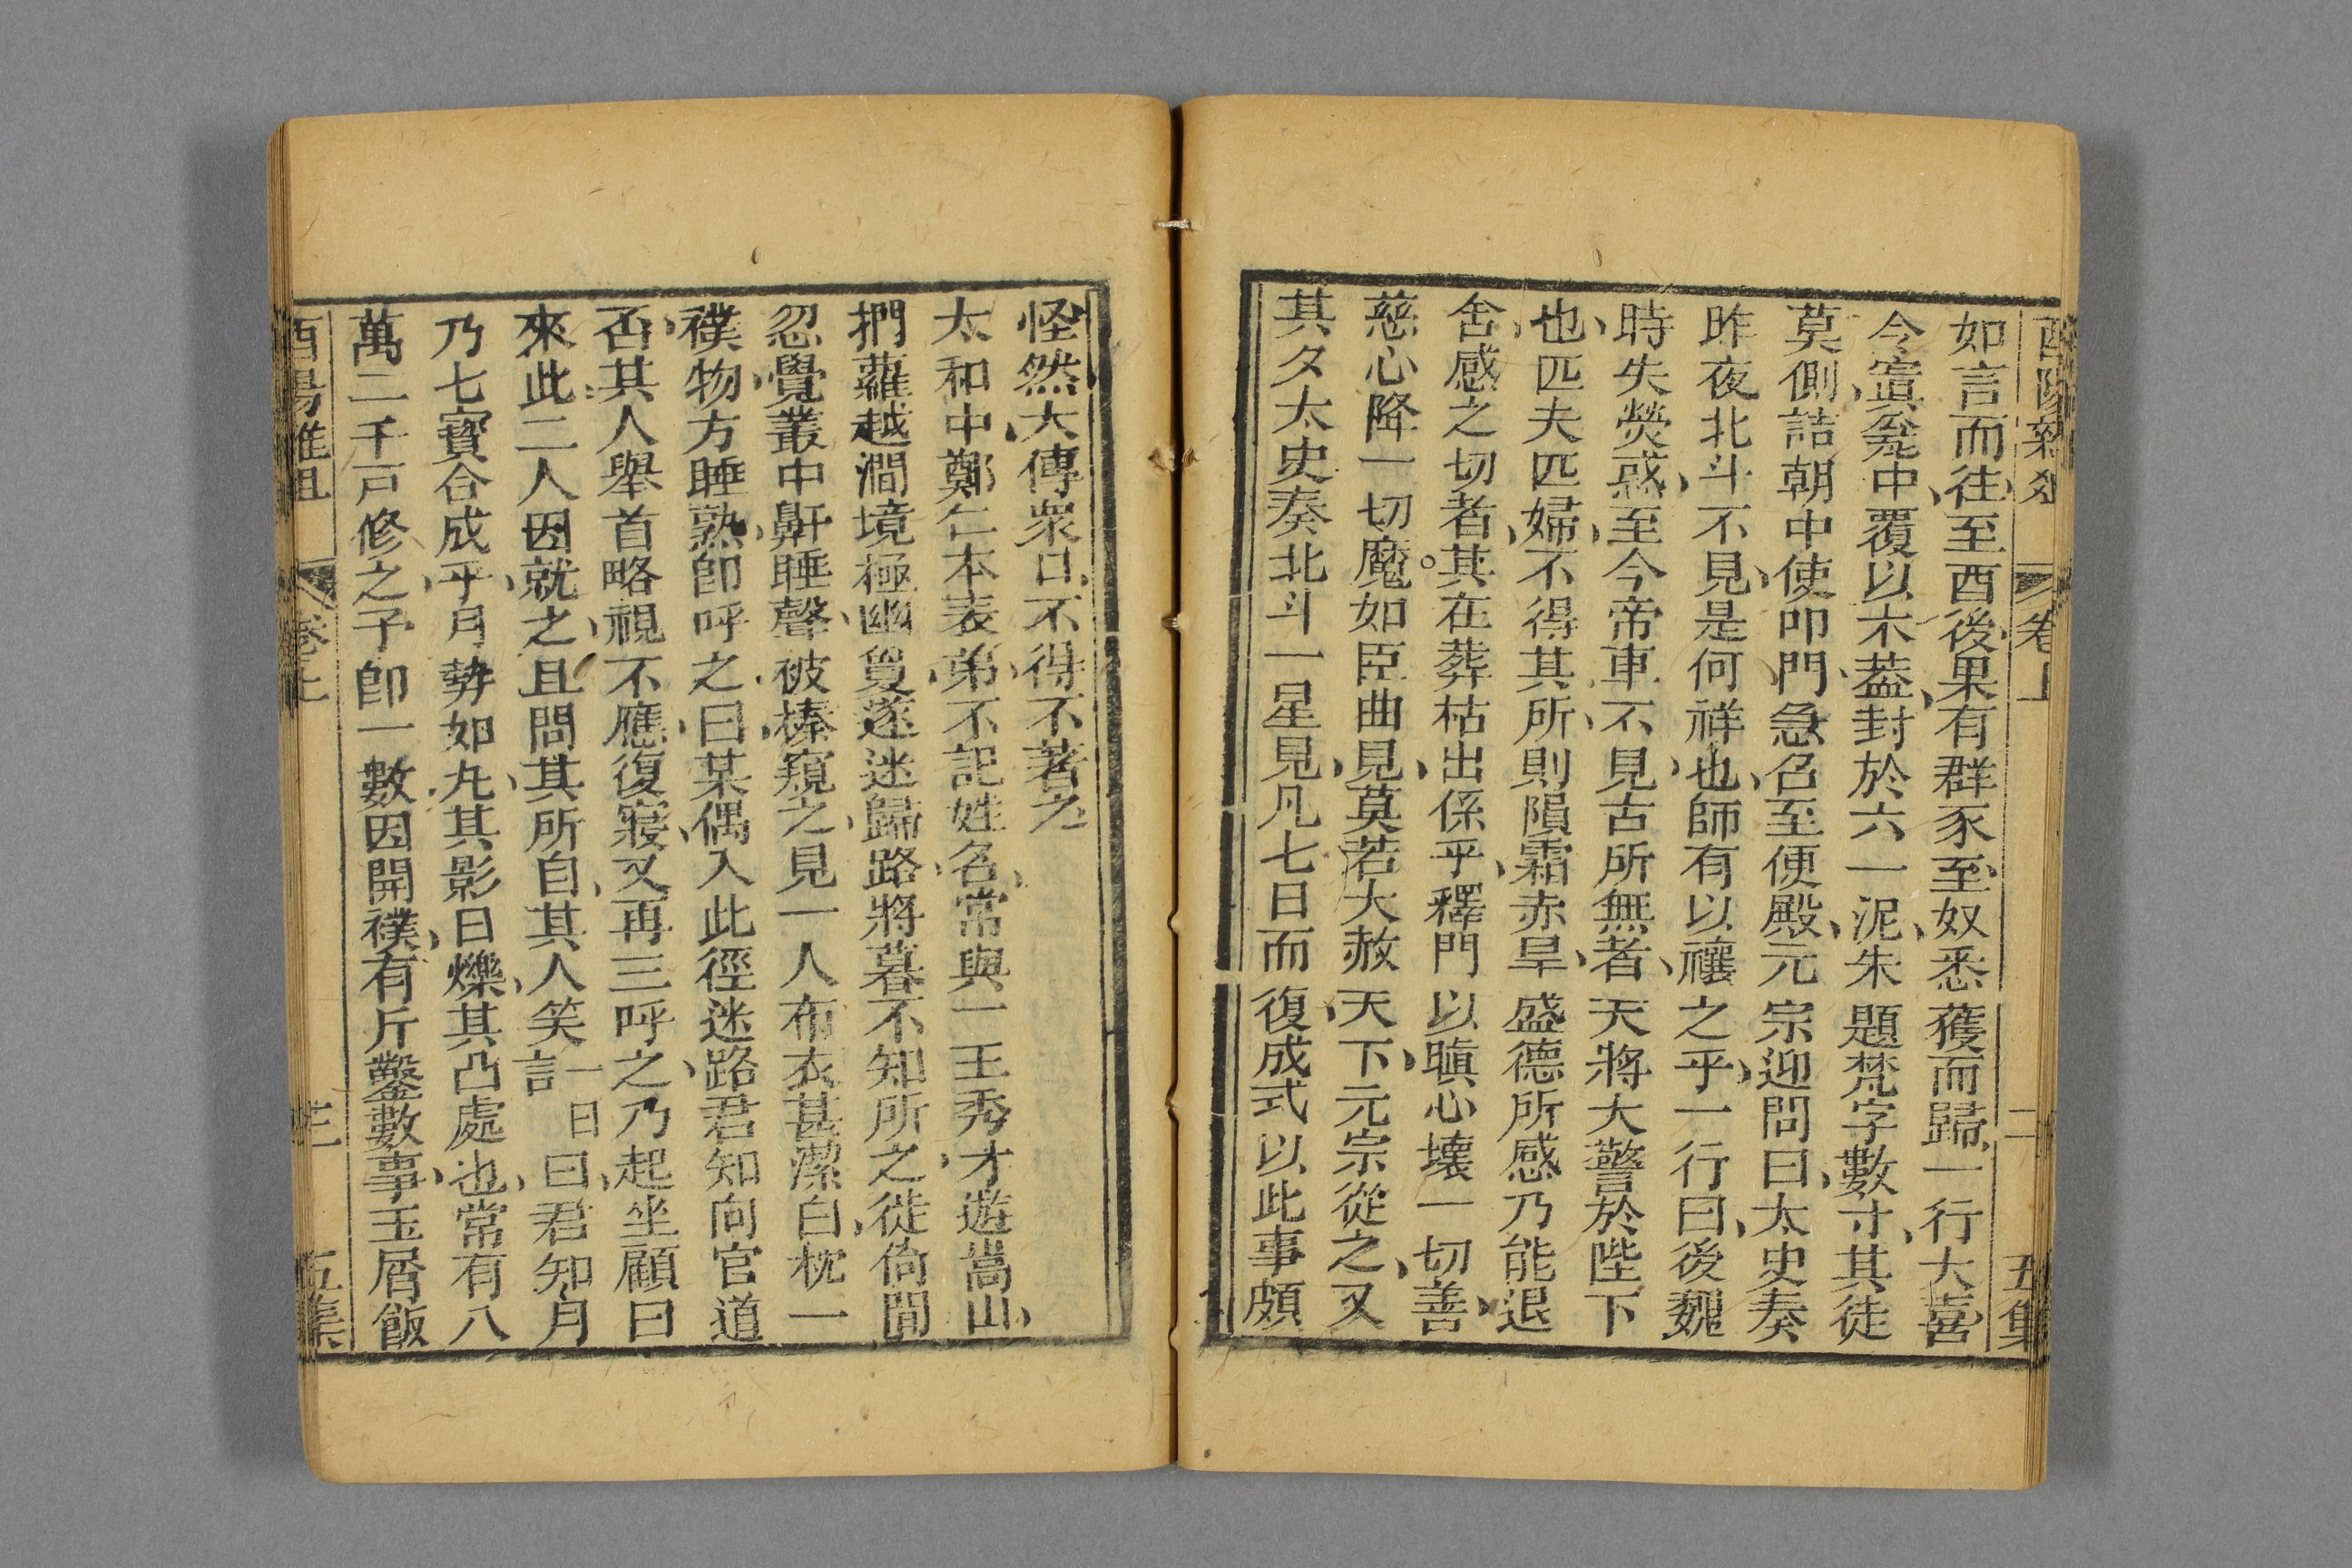 酉陽雜俎 卷上 二 五集
如言而往至酉後果有群豕至奴悉獲而歸一行大喜
令寘瓮中覆以木葢封於六一泥朱題梵字數寸其徒
莫側詰朝中使叩門急召至便殿元宗迎問曰太史奏
昨夜北斗不見是何祥也師有以禳之乎一行曰後魏
時失熒惑至今帝車不見古所無者天將大警於陛下
也匹夫匹婦不得其所則隕霜赤旱盛德所感乃能退
舍感之切者其在葬枯出係乎釋門以瞋心壞一切善
慈心降一切魔如臣曲見莫若大赦天下元宗從之又
其夕太史奏北斗一星見凡七日而復成式以此事頗
怪然大傳衆口不得不著之
太和中鄭仁本表弟不記姓名常與一王秀才遊嵩山
捫蘿越澗境極幽夐遂迷歸路將暮不知所之徙倚間
忽覺叢中鼾睡聲披榛窺之見一人布衣甚潔白枕一
襆物方睡熟卽呼之曰某偶入此徑迷路君知向官道
否其人舉首略視不應復寢又再三呼之乃起坐顧曰
來此二人因就之且問其所自其人笑言一日曰君知月
乃七寶合成乎月勢如丸其影日爍其凸處也常有八
萬二千戸修之予卽一數因開襆有斤鑿數事玉屑飯
酉陽雜俎 卷上 三 五集